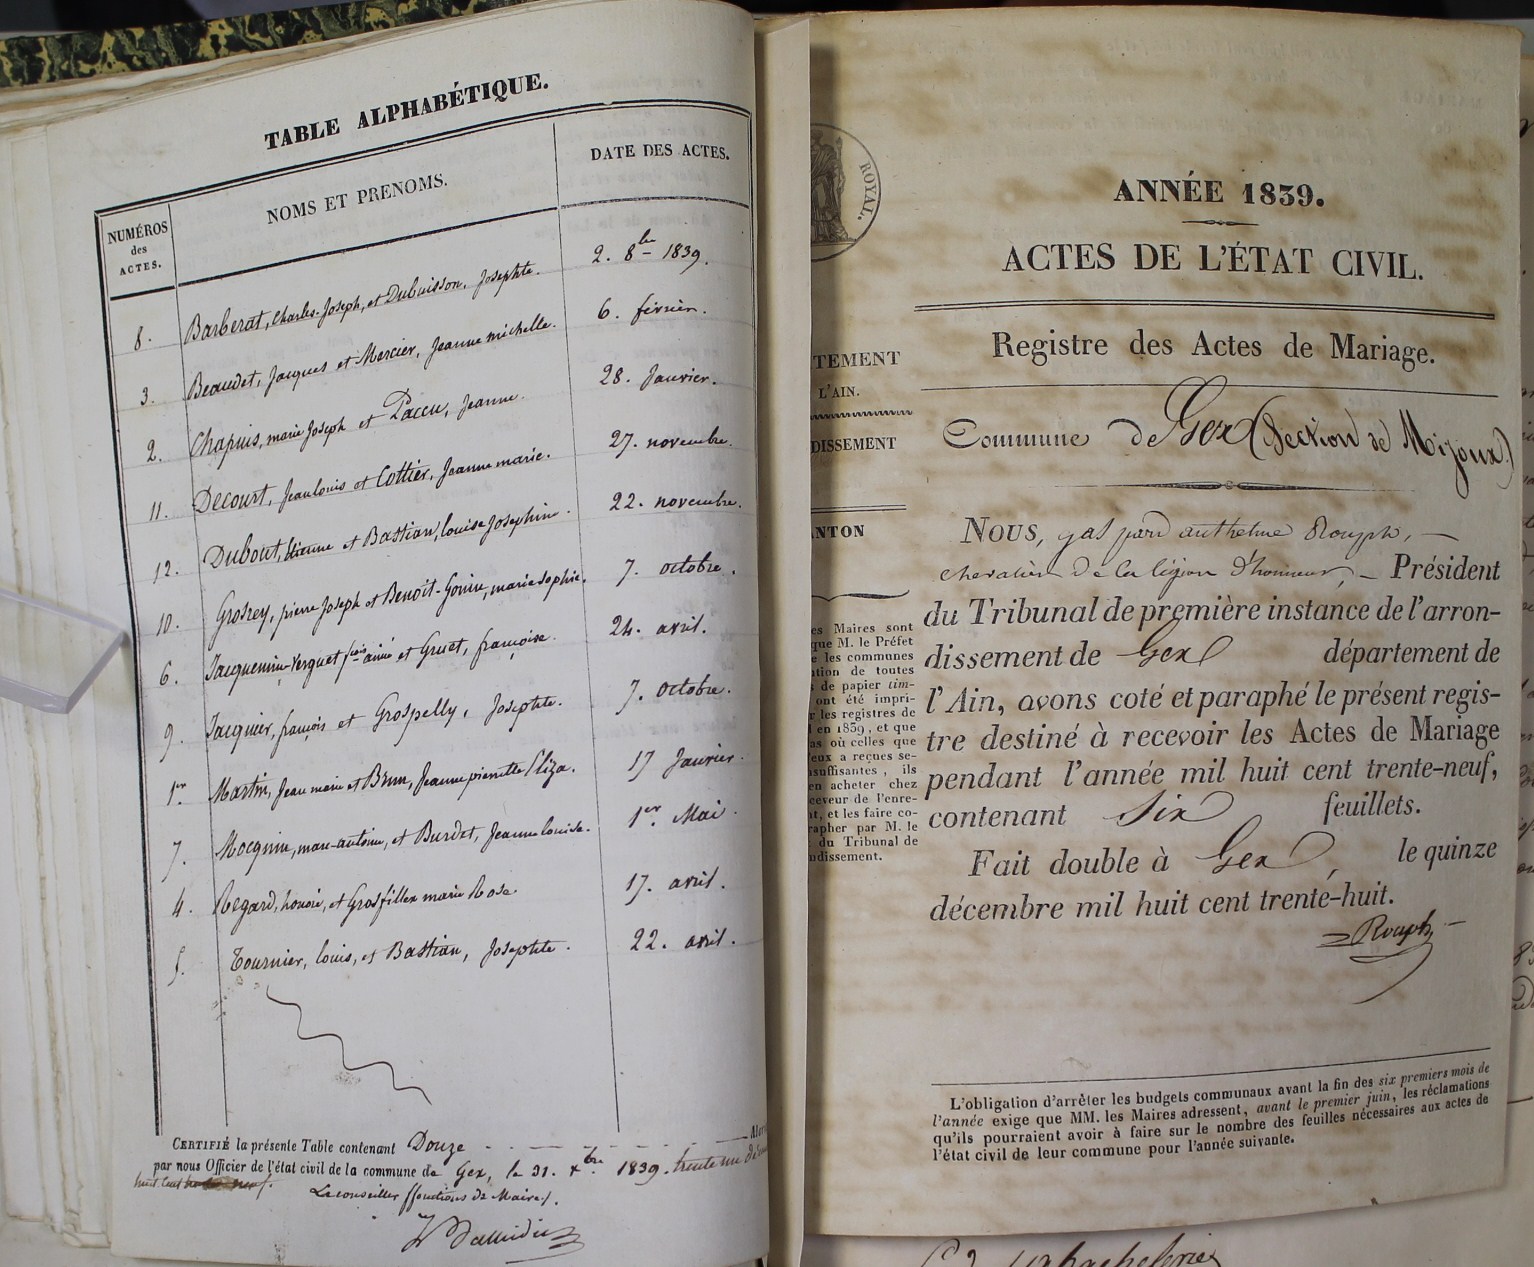 TABLE ALPHABÉTIQUE.
NUMÉROS des ACTES.
NOMS ET PRENOMS.
DATE DES ACTES.
8. Barberat, Charles-Joseph, et Dubuisson, Josephte. 2. 8bre 1839.
3. Beaudet, Jacques et Mercier, Jeanne michelle. 6. février.
2. Chapuis, marie Joseph et Paccu, Jeanne. 28. Janvier.
11. Decourt, Jean louis et Cottier, Jeanne marie. 27. novembre.
12. Dubout, Etienne et Bastian, louise Josephine. 22. novembre.
10. Grosrey, pierre Joseph et Benoit-Gonin, marie sophie. 7. octobre.
6. Jacquemin-Verguet fçois aimé et Gruet, françoise. 24. avril.
9. Jacquier, françois et Grospelly, Josephte. 7. octobre.
1er Martin, Jean marie et Brun, Jeanne pierrette Eliza. 17 Janvier.
7. Mocquin, marc-antoine, et Burdet, Jeanne louise. 1er Mai.
4. Regard, honoré, et Grosfillex marie Rose. 17. avril.
5. Tournier, louis, et Bastian, Josephte. 22. avril.
CERTIFIÉ la présente Table contenant Douze
par nous Officier de l'état civil de la commune de Gex, le 31. xbre 1839. trente un
huit cent
Le conseiller ffonctions de Maire
ROYAL.
ANNÉE 1839.
ACTES DE L'ÉTAT CIVIL.
Registre des Actes de Mariage.
TEMENT
L'AIN.
DISSEMENT
NTON
Commune de Gex (Section de Mijoux.)
NOUS, gaspard anthelme Rouph,
chevalier de la légion d'honneur, – Président
du Tribunal de première instance de l'arron-
dissement de Gex département de
l'Ain, avons coté et paraphé le présent regis-
tre destiné à recevoir les Actes de Mariage
pendant l'année mil huit cent trente-neuf,
contenant Six feuillets.
Fait double à Gex, le quinze
décembre mil huit cent trente-huit.
Rouph
es Maires sont
que M. le Préfet
e les communes
ation de toutes
s de papier tim-
ont été impri-
r les registres de
l en 1839, et que
as où celles que
eux a reçues se-
nsuffisantes, ils
en acheter chez
ceveur de l'enre-
nt, et les faire co-
rapher par M. le
du Tribunal de
ndissement.
L'obligation d'arrêter les budgets communaux avant la fin des six premiers mois de
l'année exige que MM. les Maires adressent, avant le premier juin, les réclamations
qu'ils pourraient avoir à faire sur le nombre des feuilles nécessaires aux actes de
l'état civil de leur commune pour l'année suivante.